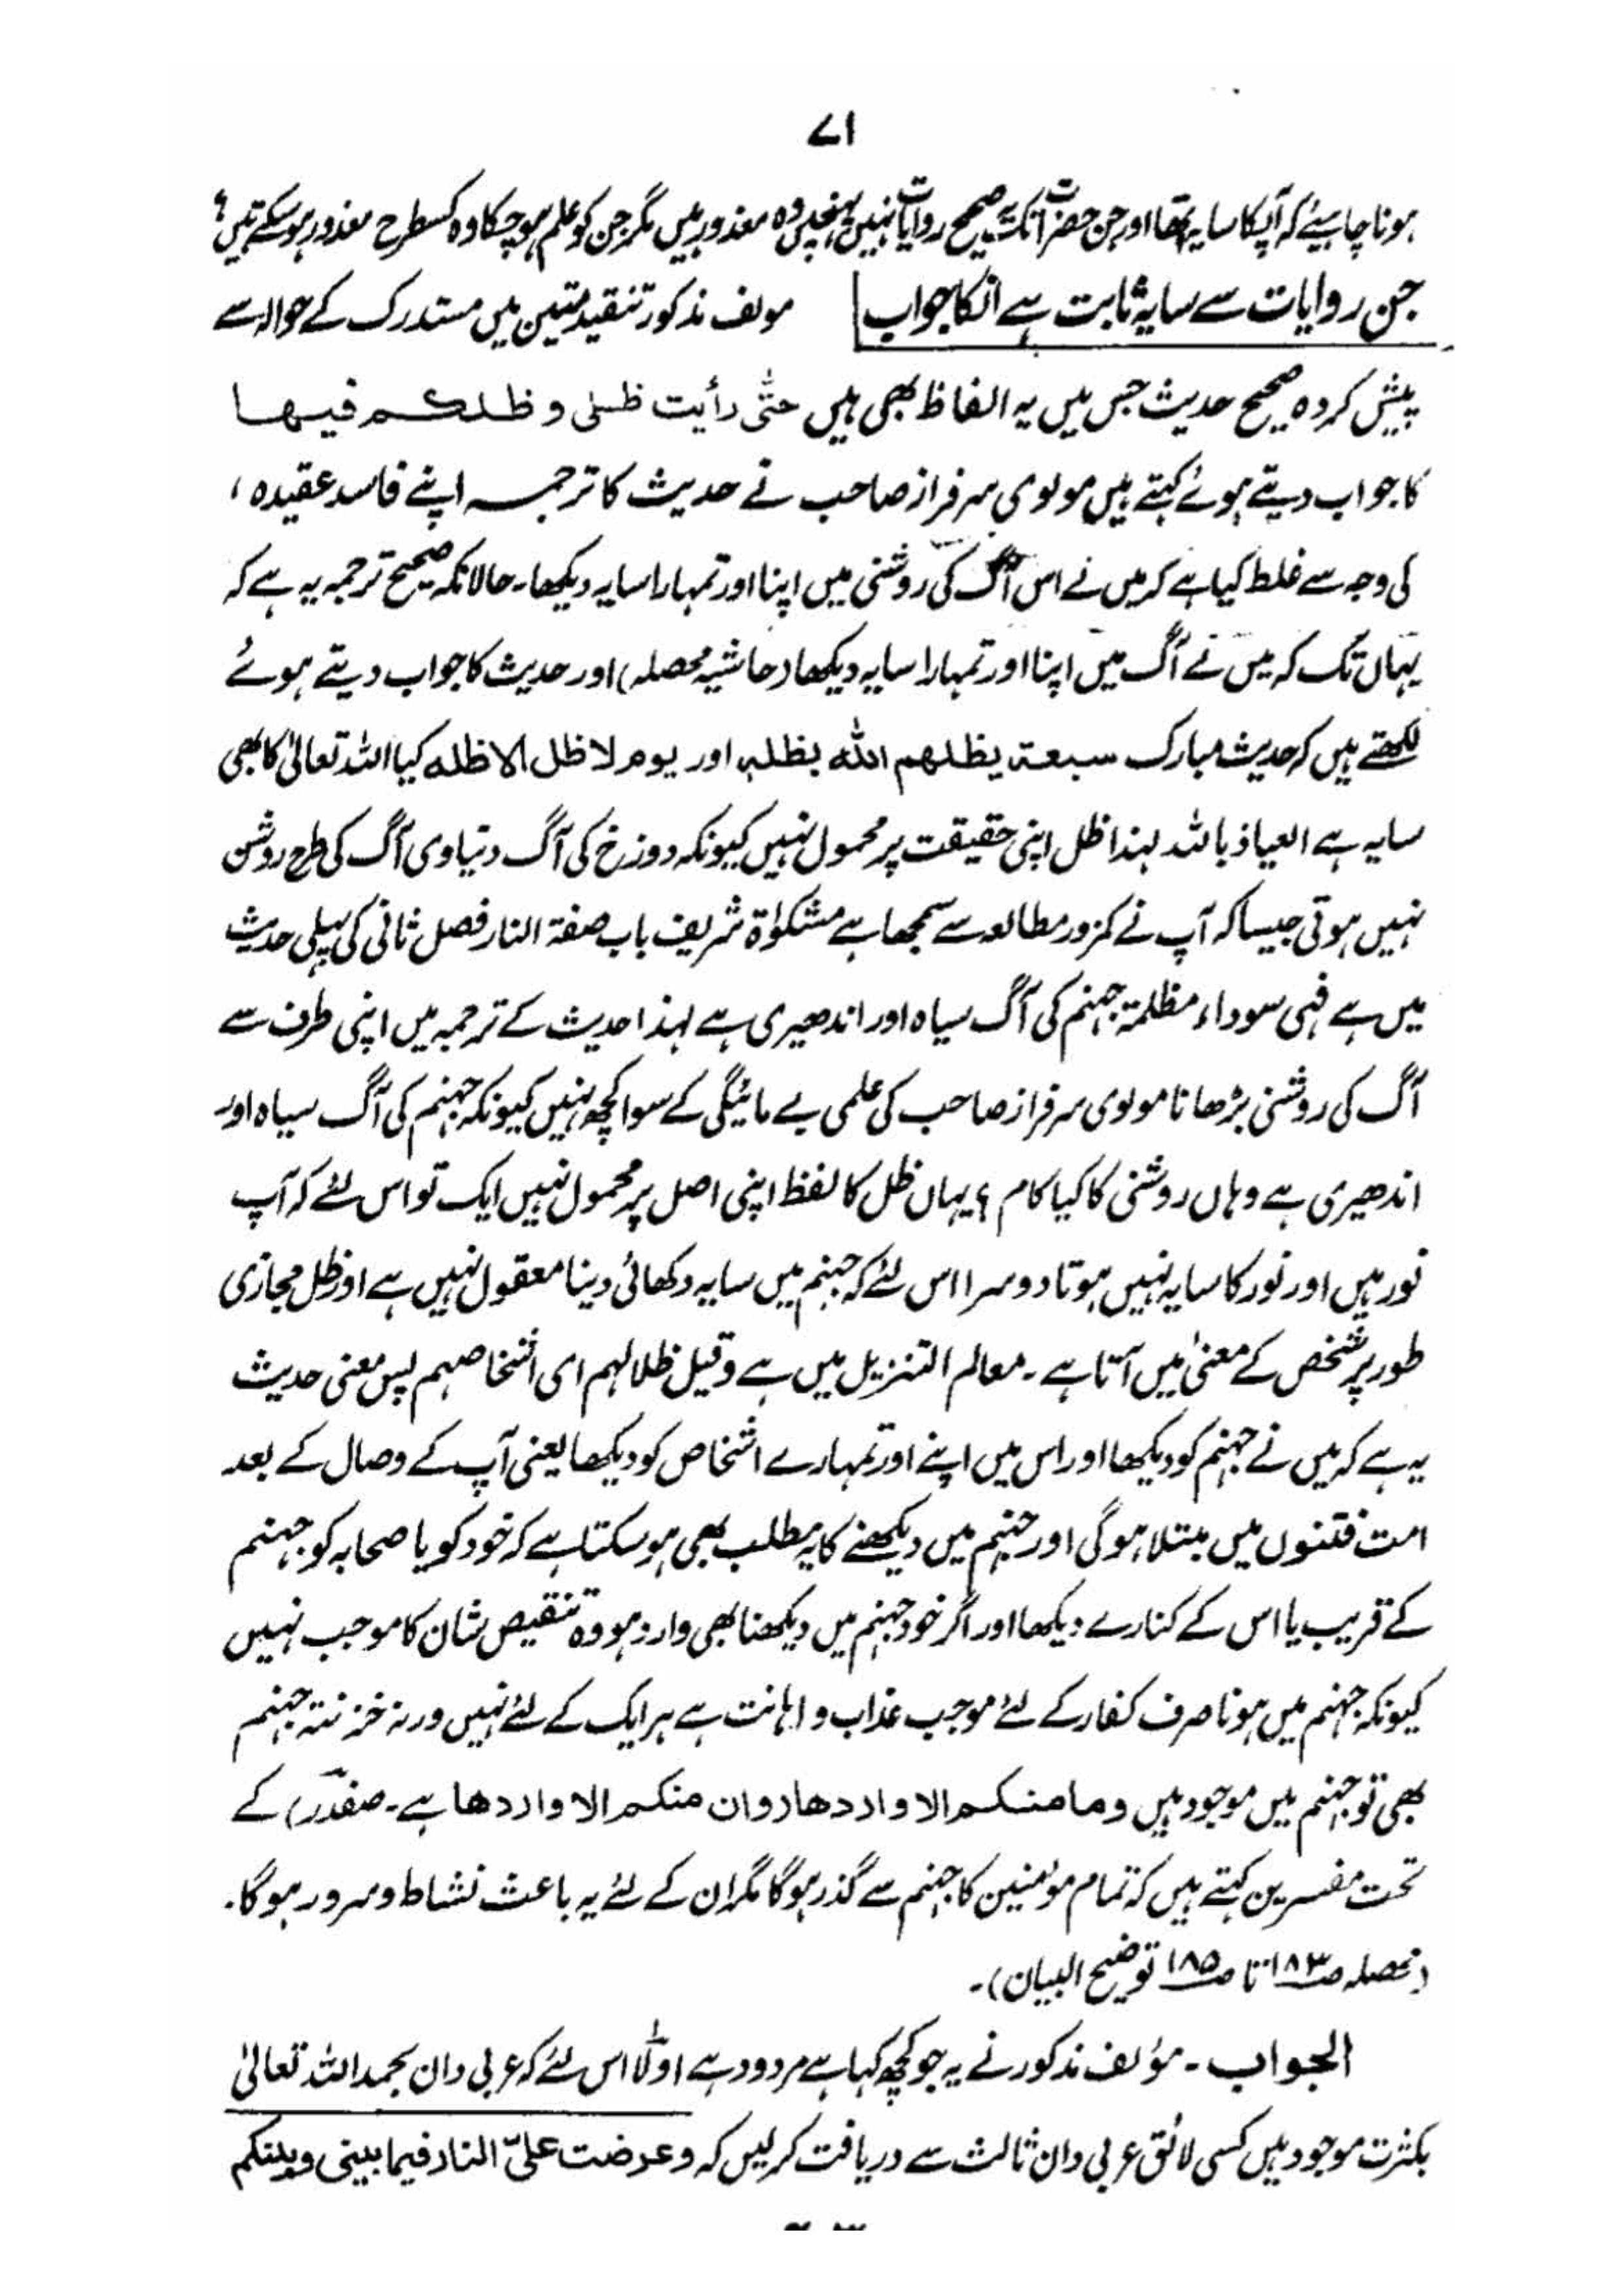 ۷۱
ہونا چاہیئے کہ آپکا سایہ تھا اور جن حضرات تک یہ صحیح روایات نہیں پہنچیں وہ معذور ہیں مگر جن کو علم ہو چکا وہ کسطرح معذور ہو سکتے ہیں؟
جن روایات سے سایہ ثابت ہے انکا جواب مولف مذکور تنقید متین میں مستدرک کے حوالہ سے
پیش کردہ صحیح حدیث جس میں یہ الفاظ بھی ہیں حتّٰی رأیت ظلی و ظلکم فیھا
کا جواب دیتے ہوئے کہتے ہیں مولوی سرفراز صاحب نے حدیث کا ترجمہ اپنے فاسد عقیدہ،
کی وجہ سے غلط کیا ہے کہ میں نے اس آگ کی روشنی میں اپنا اور تمہارا سایہ دیکھا۔ حالانکہ صحیح ترجمہ یہ ہے کہ
یہاں تک کہ میں نے آگ میں اپنا اور تمہارا سایہ دیکھا (حاشیہ محصلہ) اور حدیث کا جواب دیتے ہوئے
لکھتے ہیں کہ حدیث مبارک سبعۃ یظلھم اللہ بظلہٖ اور یوم لا ظل الا ظلہ کیا اللہ تعالیٰ کا بھی
سایہ ہے العیاذ باللہ لہٰذا ظل اپنی حقیقت پر محمول نہیں کیونکہ دوزخ کی آگ دنیاوی آگ کی طرح روشن
نہیں ہوتی جیسا کہ آپ نے کمزور مطالعہ سے سمجھا ہے مشکوٰۃ شریف باب صفۃ النار فصل ثانی کی پہلی حدیث
میں ہے فہی سوداء مظلمۃ جہنم کی آگ سیاہ اور اندھیری ہے لہذا حدیث کے ترجمہ میں اپنی طرف سے
آگ کی روشنی بڑھانا مولوی سرفراز صاحب کی علمی بے مائیگی کے سوا کچھ نہیں کیونکہ جہنم کی آگ سیاہ اور
اندھیری ہے وہاں روشنی کا کیا کام ؟ یہاں ظل کا لفظ اپنی اصل پر محمول نہیں ایک تو اس لئے کہ آپ
نور ہیں اور نور کا سایہ نہیں ہوتا دوسرا اس لئے کہ جہنم میں سایہ دکھائی دینا معقول نہیں ہے اور ظل مجازی
طور پر شخص کے معنیٰ میں آتا ہے۔ معالم التنزیل میں ہے وقیل ظلالہم ای اشخاصہم پس معنی حدیث
یہ ہے کہ میں نے جہنم کو دیکھا اور اس میں اپنے اور تمہارے اشخاص کو دیکھا یعنی آپ کے وصال کے بعد
امت فتنوں میں مبتلا ہوگی اور جہنم میں دیکھنے کا یہ مطلب بھی ہو سکتا ہے کہ خود کو یا صحابہ کو جہنم
کے قریب یا اس کے کنارے دیکھا اور اگر خود جہنم میں دیکھنا بھی وارد ہو وہ تنقیص شان کا موجب نہیں
کیونکہ جہنم میں ہونا صرف کفار کے لئے موجب عذاب و اہانت ہے ہر ایک کے لئے نہیں ورنہ خزنتہ جہنم
بھی تو جہنم میں موجود ہیں وما منکم الا واردھا (وان منکم الا واردھا ہے۔ صفدر) کے
تحت مفسرین کہتے ہیں کہ تمام مؤمنین کا جہنم سے گذر ہوگا مگر ان کے لئے یہ باعث نشاط و سرور ہوگا۔
(محصلہ ص۱۸۳ تا ص۱۸۵ توضیح البیان)۔
الجواب۔ مؤلف مذکور نے یہ جو کچھ کہا ہے مردود ہے اولًا اس لئے کہ عربی دان بحمد اللہ تعالیٰ
بکثرت موجود ہیں کسی لائق عربی دان ثالث سے دریافت کرلیں کہ وعرضت علیّ النار فیما بینی وبینکم